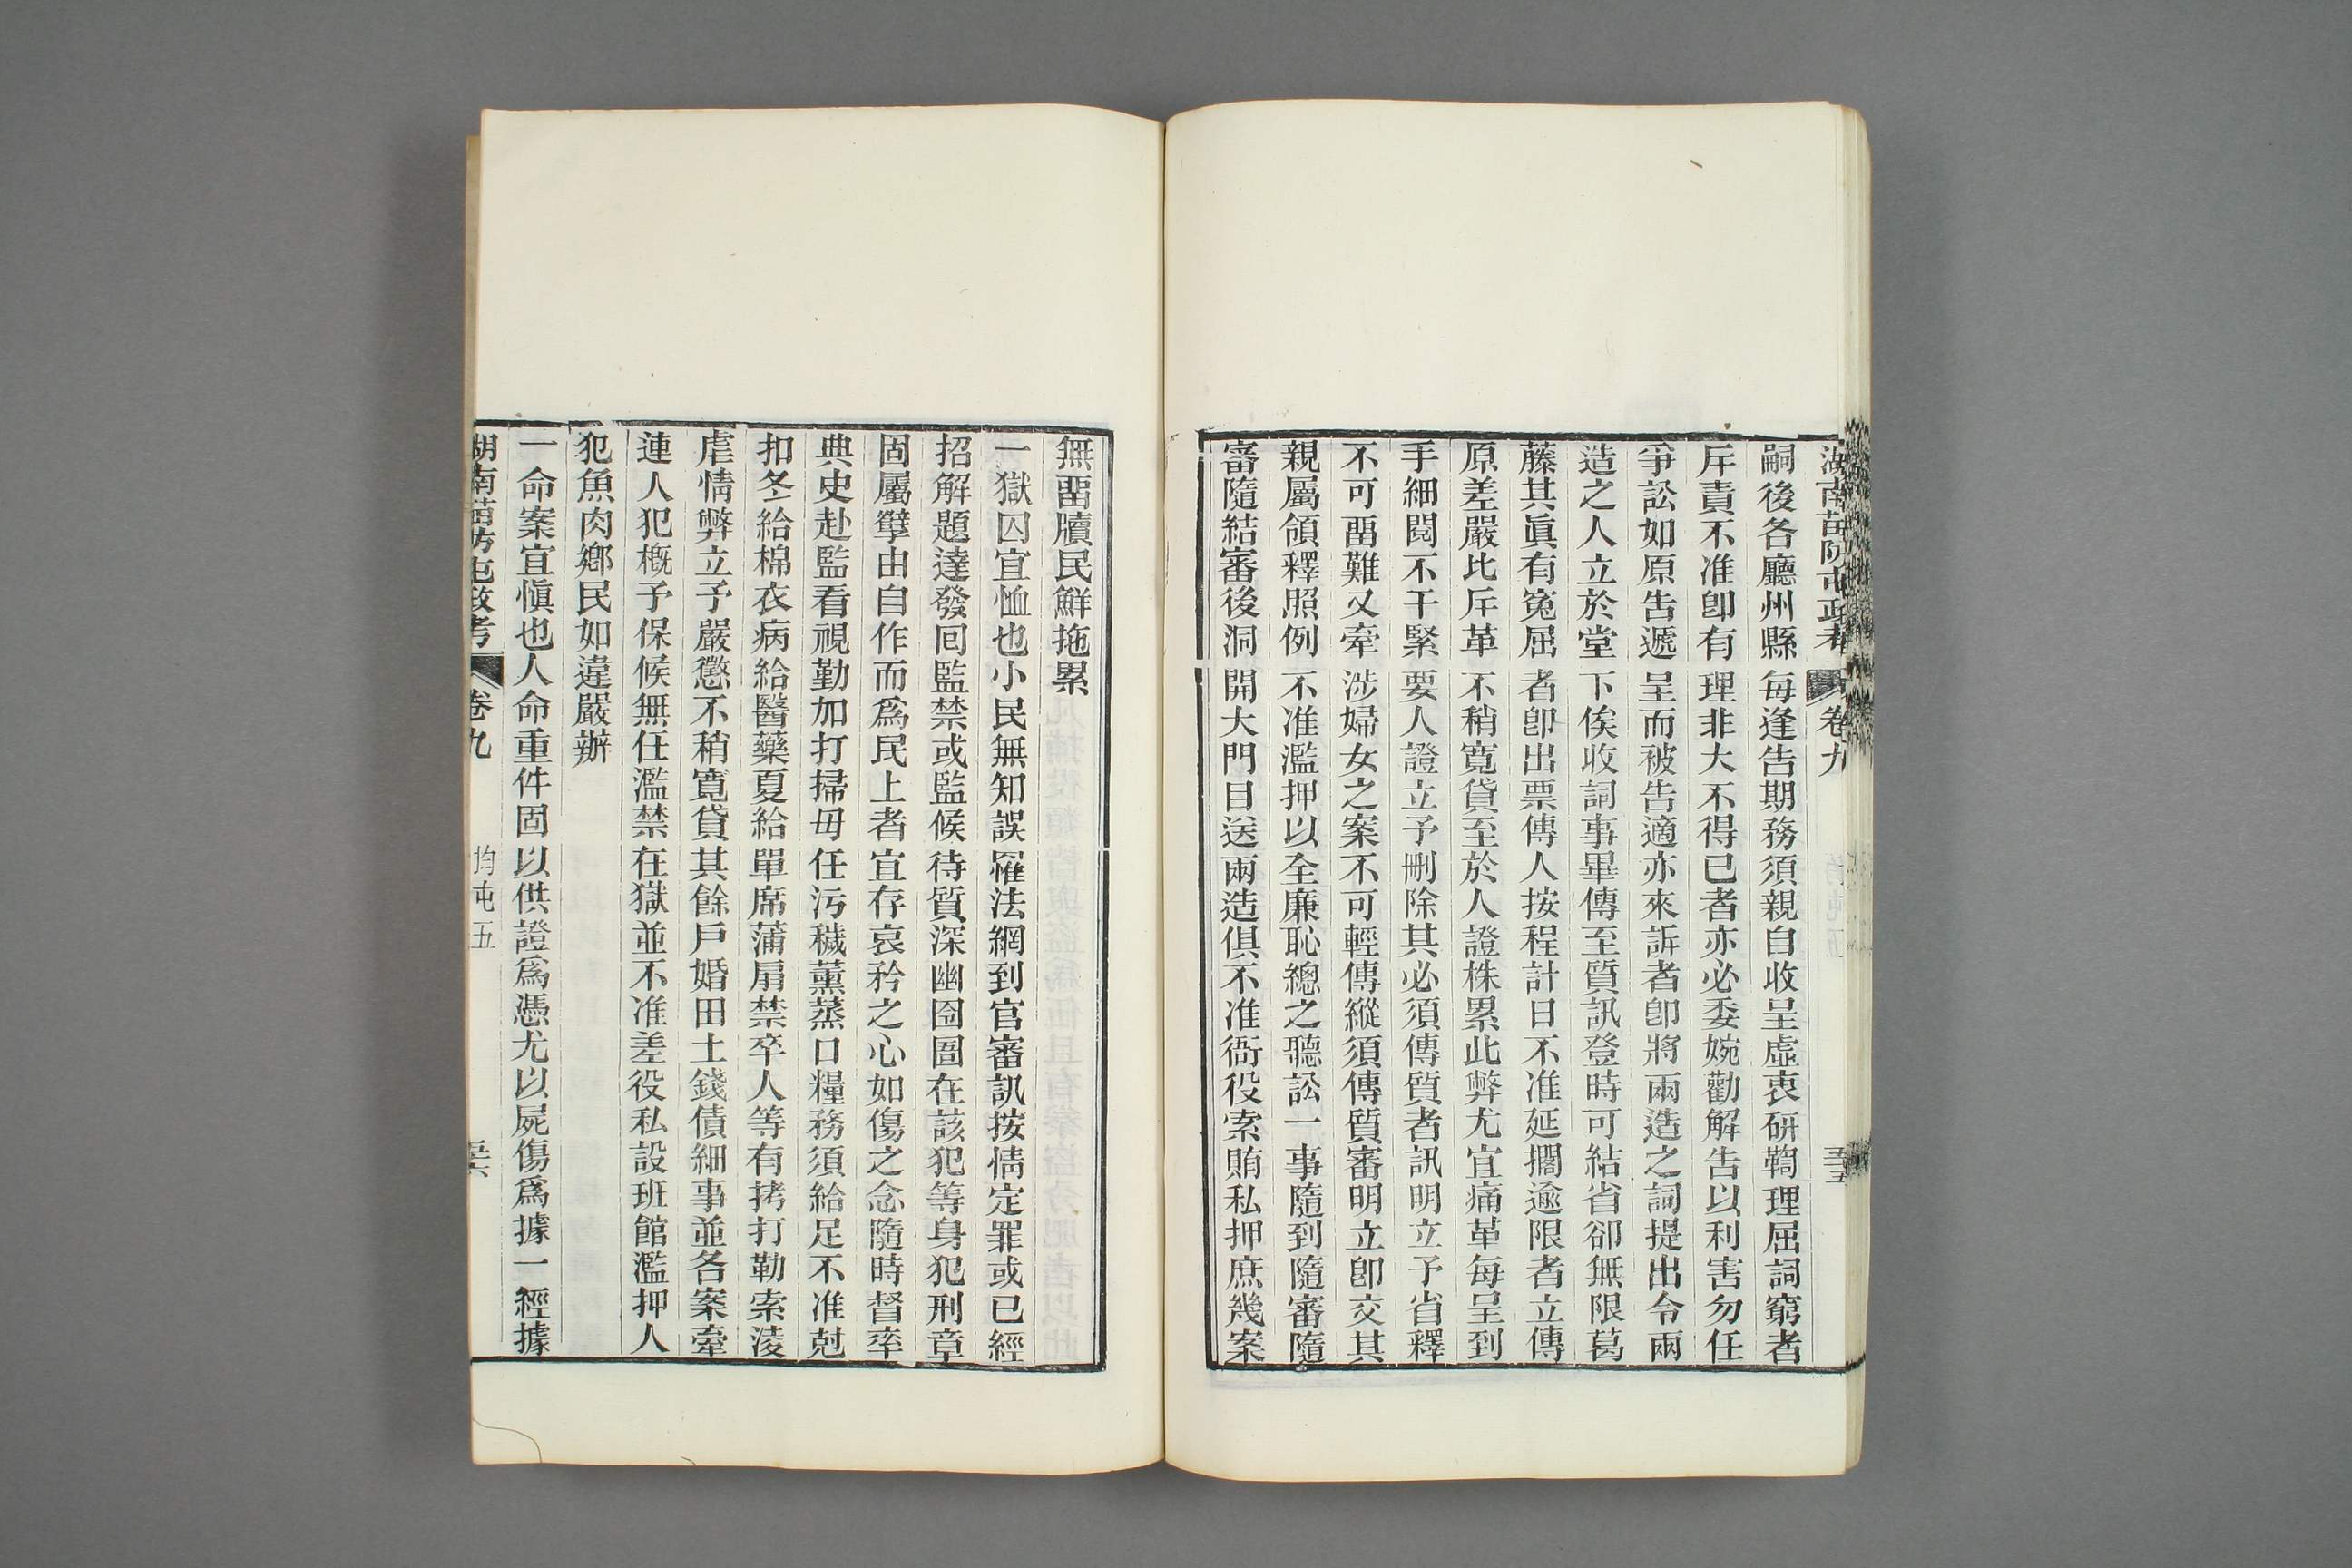 湖南苗防屯政考 卷九 均屯五 五十五
嗣後各廳州縣每逢告期務須親自收呈虛衷研鞫理屈詞窮者
斥責不准卽有理非大不得已者亦必委婉勸解告以利害勿任
爭訟如原告遞呈而被告適亦來訴者卽將兩造之詞提出令兩
造之人立於堂下俟收詞事畢傳至質訊登時可結省卻無限葛
藤其眞有冤屈者卽出票傳人按程計日不准延擱逾限者立傳
原差嚴比斥革不稍寬貸至於人證株累此弊尤宜痛革每呈到
手細閱不干緊要人證立予刪除其必須傳質者訊明立予省釋
不可畱難又牽涉婦女之案不可輕傳縱須傳質審明立卽交其
親屬領釋照例不准濫押以全廉恥總之聽訟一事隨到隨審隨
審隨結審後洞開大門目送兩造俱不准衙役索賄私押庶幾案
無畱牘民鮮拖累
一獄囚宜恤也小民無知誤罹法網到官審訊按情定罪或已經
招解題達發回監禁或監候待質深幽囹圄在該犯等身犯刑章
固屬孽由自作而爲民上者宜存哀矜之心如傷之念隨時督率
典史赴監看視勤加打掃毋任污穢薰蒸口糧務須給足不准尅
扣冬給棉衣病給醫藥夏給單席蒲扇禁卒人等有拷打勒索淩
虐情弊立予嚴懲不稍寬貸其餘戶婚田土錢債細事並各案牽
連人犯槪予保候無任濫禁在獄並不准差役私設班館濫押人
犯魚肉鄉民如違嚴辦
一命案宜愼也人命重件固以供證爲憑尤以屍傷爲據一經據
湖南苗防屯政考 卷九 均屯五 五十六